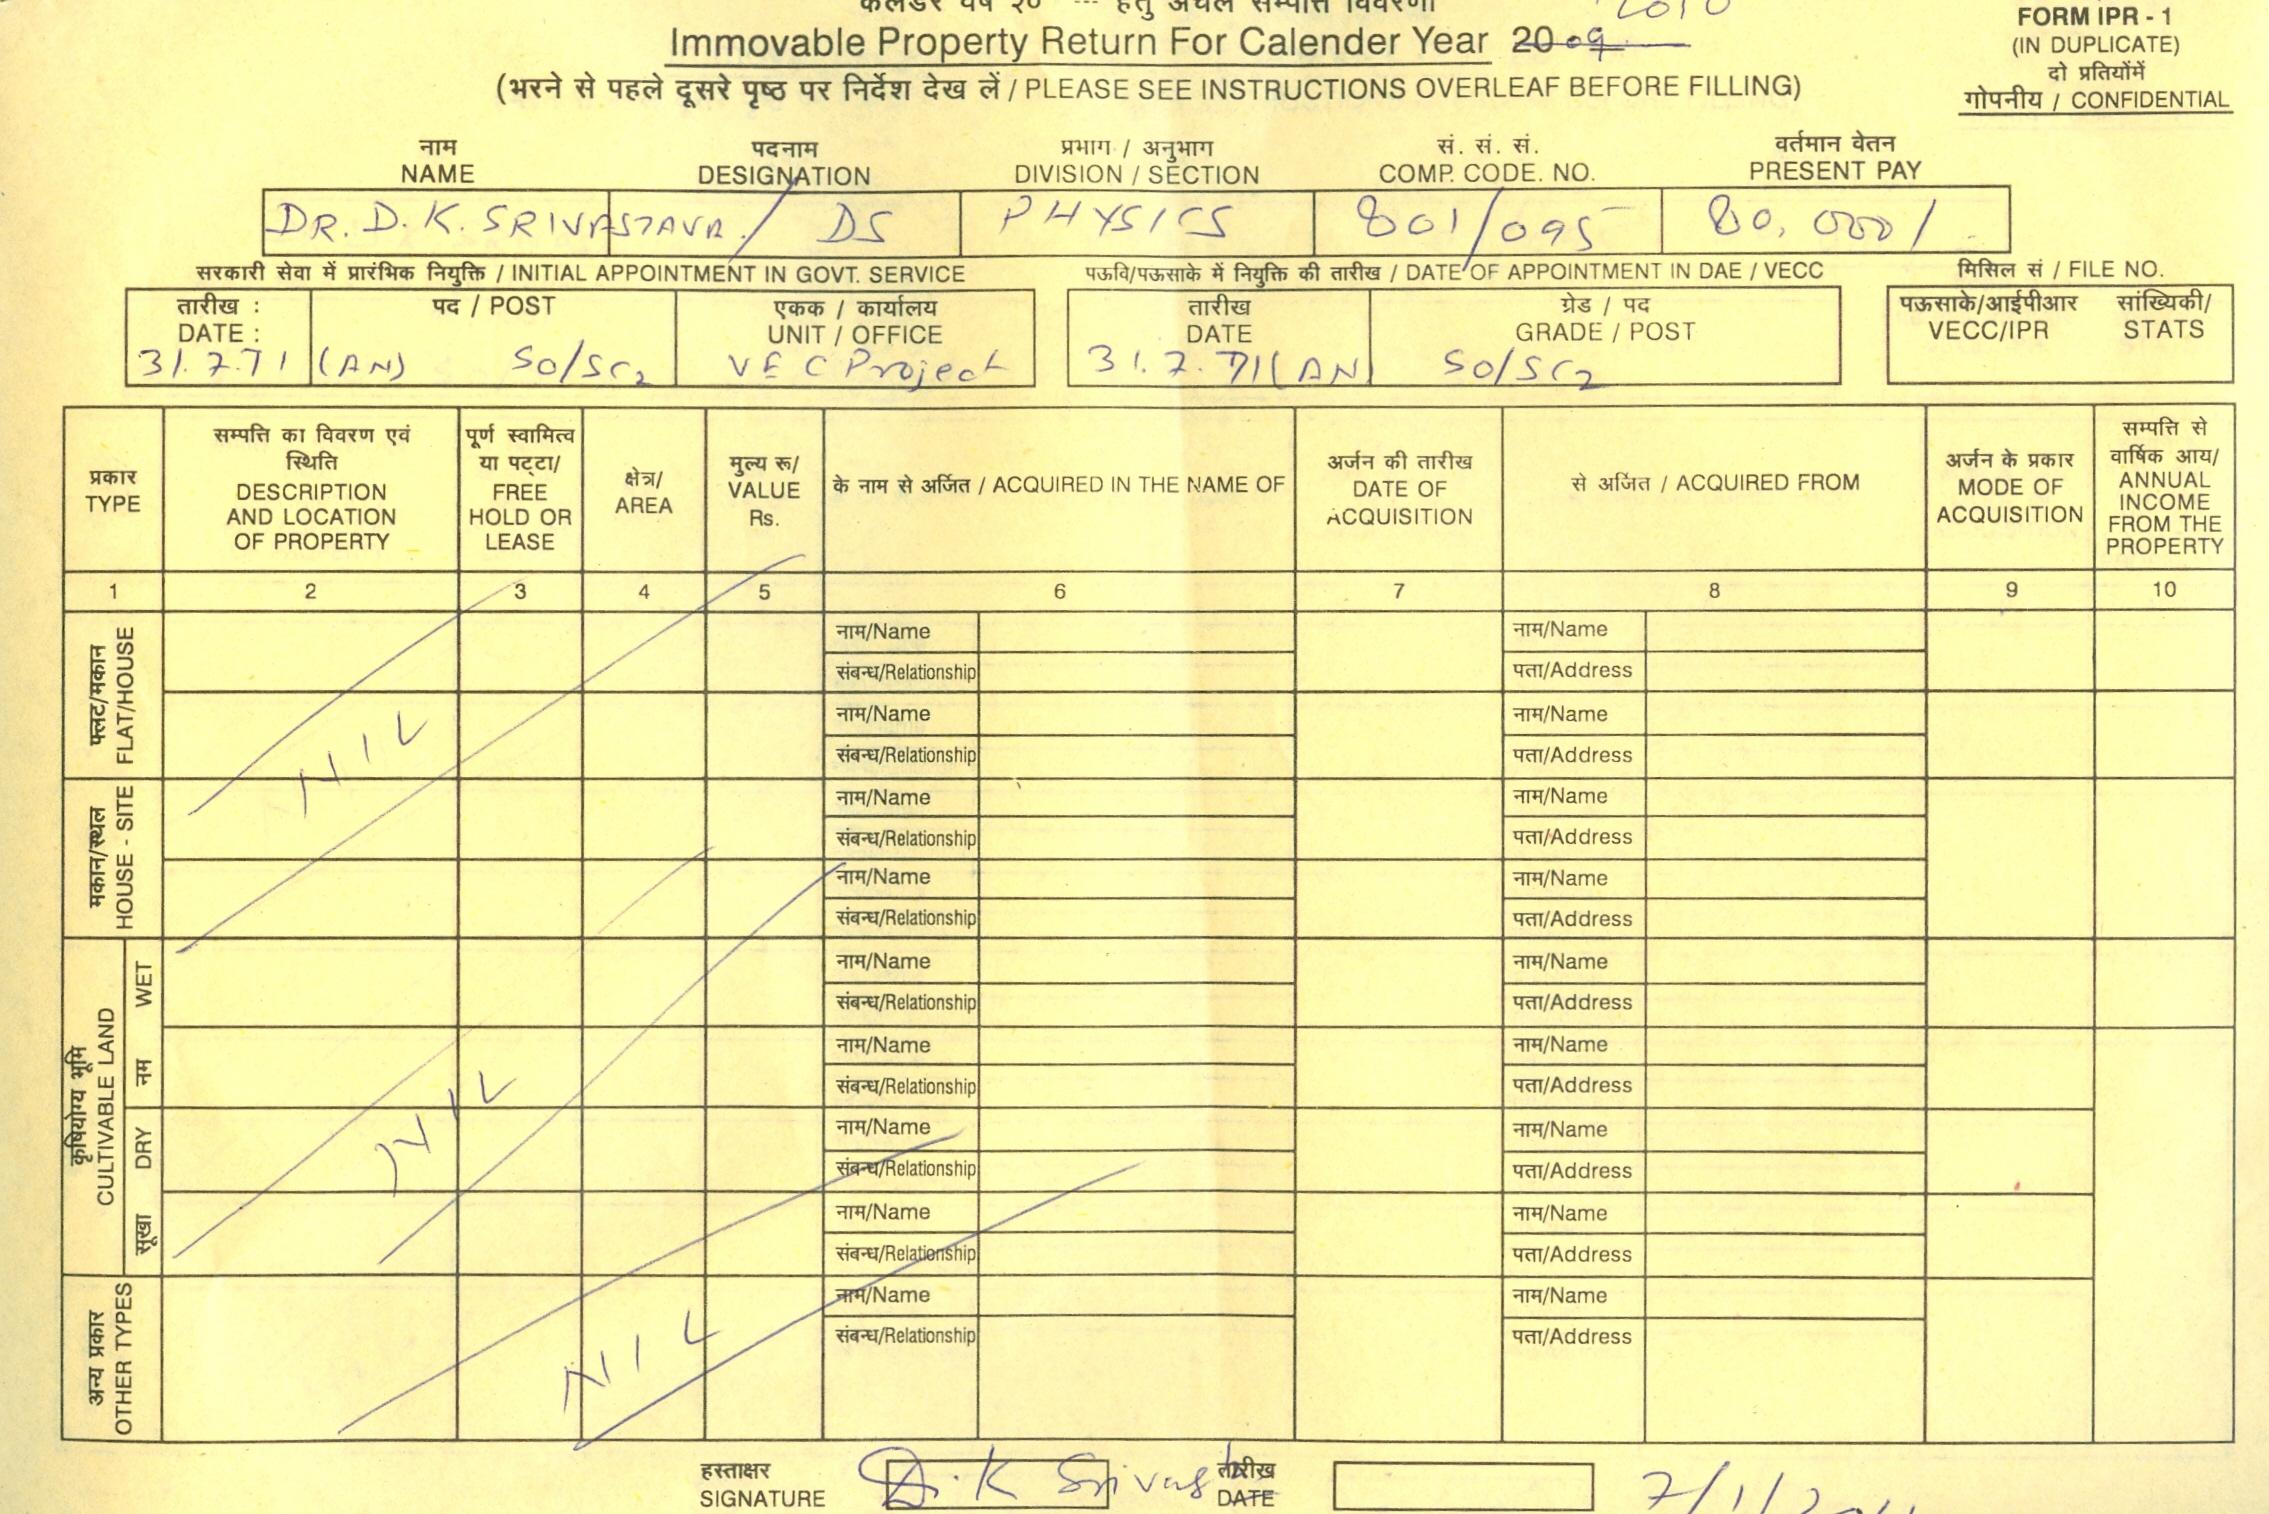 कैलेंडर वर्ष २० --- हेतु अचल सम्पत्ति विवरणी
2010
Immovable Property Return For Calender Year 2009
(भरने से पहले दूसरे पृष्ठ पर निर्देश देख लें / PLEASE SEE INSTRUCTIONS OVERLEAF BEFORE FILLING)
FORM IPR - 1
(IN DUPLICATE)
दो प्रतियोंमें
गोपनीय / CONFIDENTIAL
नाम पदनाम प्रभाग / अनुभाग सं. सं. सं. वर्तमान वेतन
NAME DESIGNATION DIVISION / SECTION COMP. CODE. NO. PRESENT PAY
DR. D. K. SRIVASTAVA / DS PHYSICS 801/095 80,000/
सरकारी सेवा में प्रारंभिक नियुक्ति / INITIAL APPOINTMENT IN GOVT. SERVICE पऊवि/पऊसाके में नियुक्ति की तारीख / DATE OF APPOINTMENT IN DAE / VECC मिसिल सं / FILE NO.
तारीख : पद / POST एकक / कार्यालय तारीख ग्रेड / पद पऊसाके/आईपीआर सांख्यिकी/
DATE : UNIT / OFFICE DATE GRADE / POST VECC/IPR STATS
31.7.71 (AN) SO/SC2 VEC Project 31.7.71(AN) SO/SC2
प्रकार
TYPE
सम्पत्ति का विवरण एवं
स्थिति
DESCRIPTION
AND LOCATION
OF PROPERTY
पूर्ण स्वामित्व
या पट्टा/
FREE
HOLD OR
LEASE
क्षेत्र/
AREA
मुल्य रू/
VALUE
Rs.
के नाम से अर्जित / ACQUIRED IN THE NAME OF
अर्जन की तारीख
DATE OF
ACQUISITION
से अर्जित / ACQUIRED FROM
अर्जन के प्रकार
MODE OF
ACQUISITION
सम्पत्ति से
वार्षिक आय/
ANNUAL
INCOME
FROM THE
PROPERTY
1 2 3 4 5 6 7 8 9 10
फ्लैट/मकान
FLAT/HOUSE
नाम/Name नाम/Name
संबन्ध/Relationship पता/Address
NIL
नाम/Name नाम/Name
संबन्ध/Relationship पता/Address
मकान/स्थल
HOUSE - SITE
नाम/Name नाम/Name
संबन्ध/Relationship पता/Address
नाम/Name नाम/Name
संबन्ध/Relationship पता/Address
कृषियोग्य भूमि
CULTIVABLE LAND
नम WET
नाम/Name नाम/Name
संबन्ध/Relationship पता/Address
NIL
नाम/Name नाम/Name
संबन्ध/Relationship पता/Address
सूखा DRY
नाम/Name नाम/Name
संबन्ध/Relationship पता/Address
नाम/Name नाम/Name
संबन्ध/Relationship पता/Address
अन्य प्रकार
OTHER TYPES
नाम/Name नाम/Name
संबन्ध/Relationship पता/Address
NIL
हस्ताक्षर तारीख
SIGNATURE D.K Srivas DATE 7/1/2011